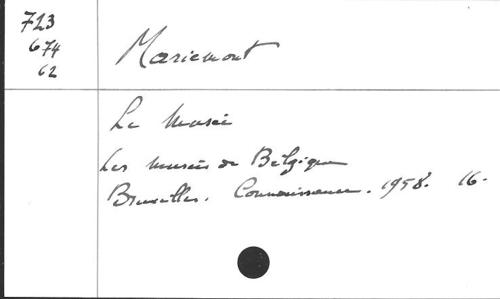 723
674
62
Mariemont
Le Musée
Les musées de Belgique
Bruxelles. Connaissance. 1958. 16.